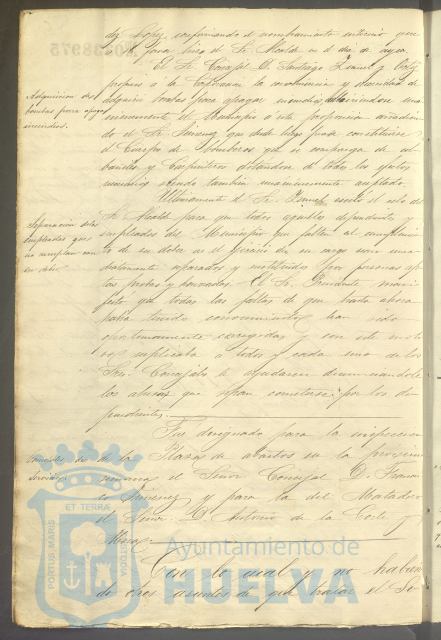 dez Lopez, confirmando el nombramiento interino que
á favor hizo el Sr. Alcalde en el dia de ayer.
El Sr. Concejal D. Santiago
propuso á la Corporacion la conveniencia y necesidad de
Adquisicion de
bombas para apagar
incendios.
adquirir bombas para apagar incendios,
el Municipio á esta proposicion
do el Sr. Jimenez que desde luego puede constituirse
el Cuerpo de Bomberos que se componga de al-
bañiles y Carpinteros dotándose de todos los efectos
necesarios siendo tambien unanimemente aceptado.
Ultimamente el Sr. el celo del
Separacion de los
empleados que
no cumplan con
su deber.
Sr. Alcalde para que todos aquellos dependientes y
empleados del Municipio que falten al cumplimien-
to de su deber en el ejercicio de su cargo sean inme-
diatamente separados y sustituidos por personas ap-
tas probas y honradas. El Sr. Presidente mani-
festó que todas las faltas de que hasta ahora
habia tenido conocimiento han sido
oportunamente corregidas y con este moti-
vo suplicaba á todos y cada uno de los
Sres. Concejales le ayudaran denunciandole
los abusos que sepan cometerse por los de-
pendientes.
Fué designado para la inspeccion
de la
Servicios.
Plaza de abastos en la proxima
semana el Señor Concejal D. Francis-
co Jimenez y para la del Matadero
el Señor D. Antonio de la Corte y
Con lo cual y no habien-
do otros asuntos de que tratar el Se-
ET TERRA
PORTUS MARIS
CUSTODIA
Ayuntamiento de
HUELVA